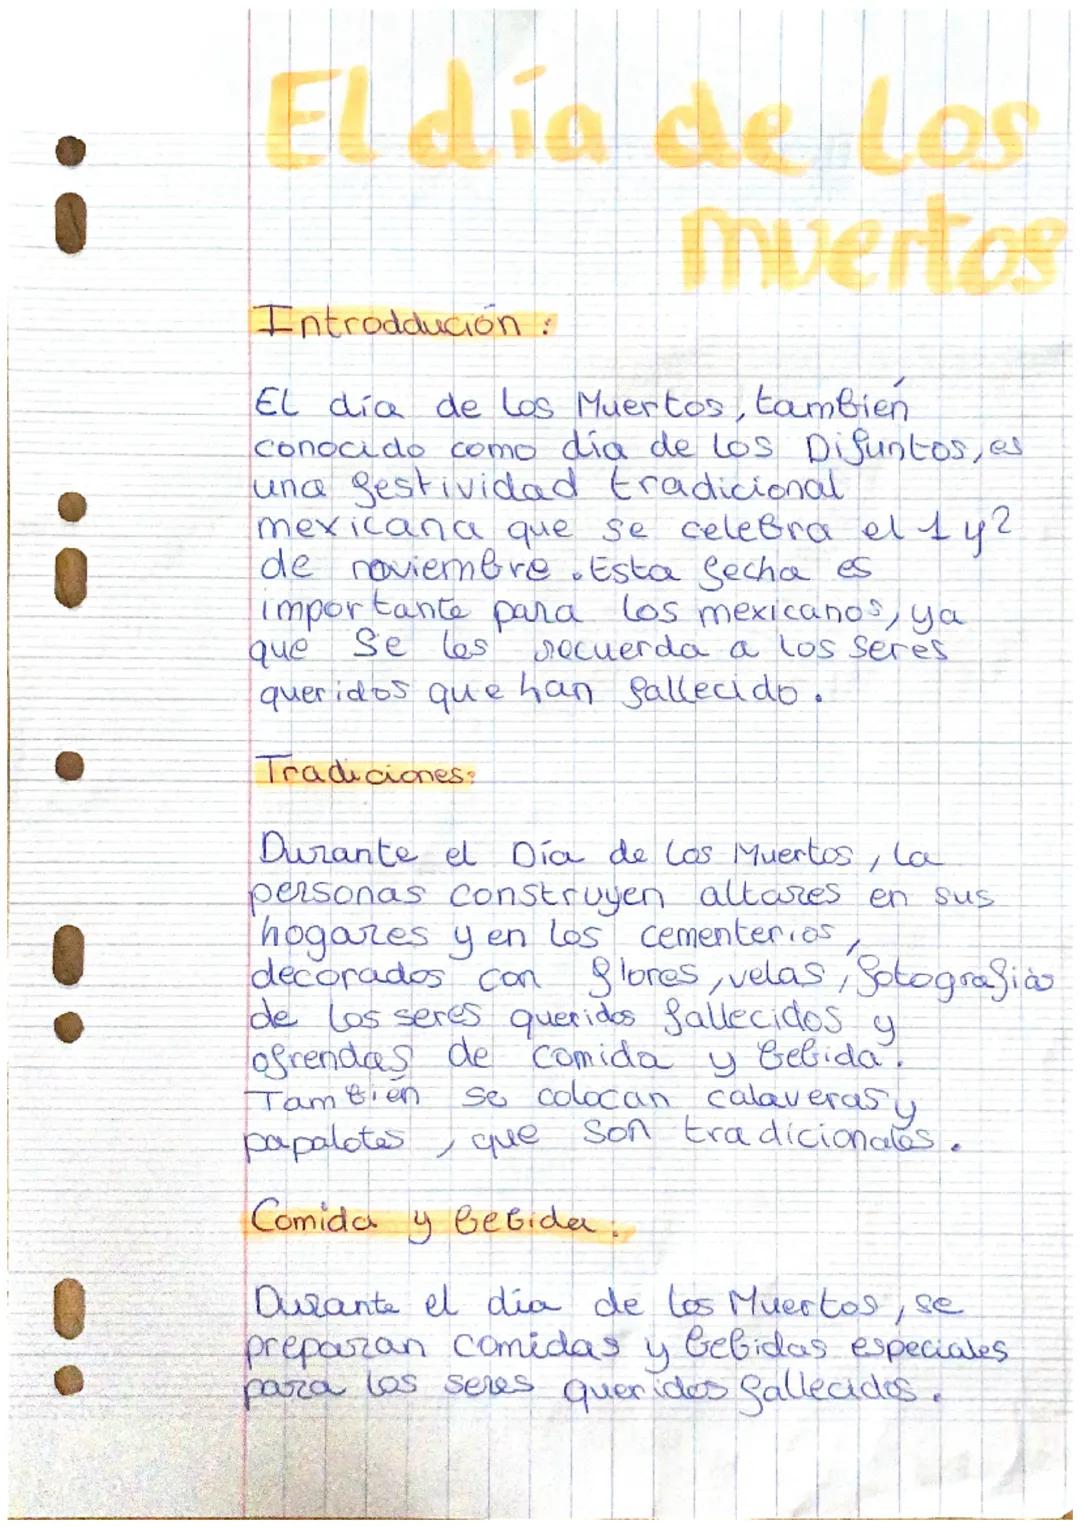 El día de los
muertos
Introddución :
El día de los Muertos, también
conocido como día de los Difuntos, es
una festividad tradicional
mexicana que se celebra el 1 y 2
de noviembre. Esta fecha es
importante para los mexicanos, ya
que se les recuerda a los seres
queridos que han fallecido.
Tradiciones:
Durante el Día de los Muertos, la
personas construyen altares en sus
hogares y en los cementerios,
decorados con flores, velas, fotografías
de los seres queridos fallecidos y
ofrendas de comida y bebida.
También se colocan calaveras y
papalotes, que son tradicionales.
Comida y bebida :
Durante el día de los Muertos, se
preparan comidas y bebidas especiales
para los seres queridos fallecidos.